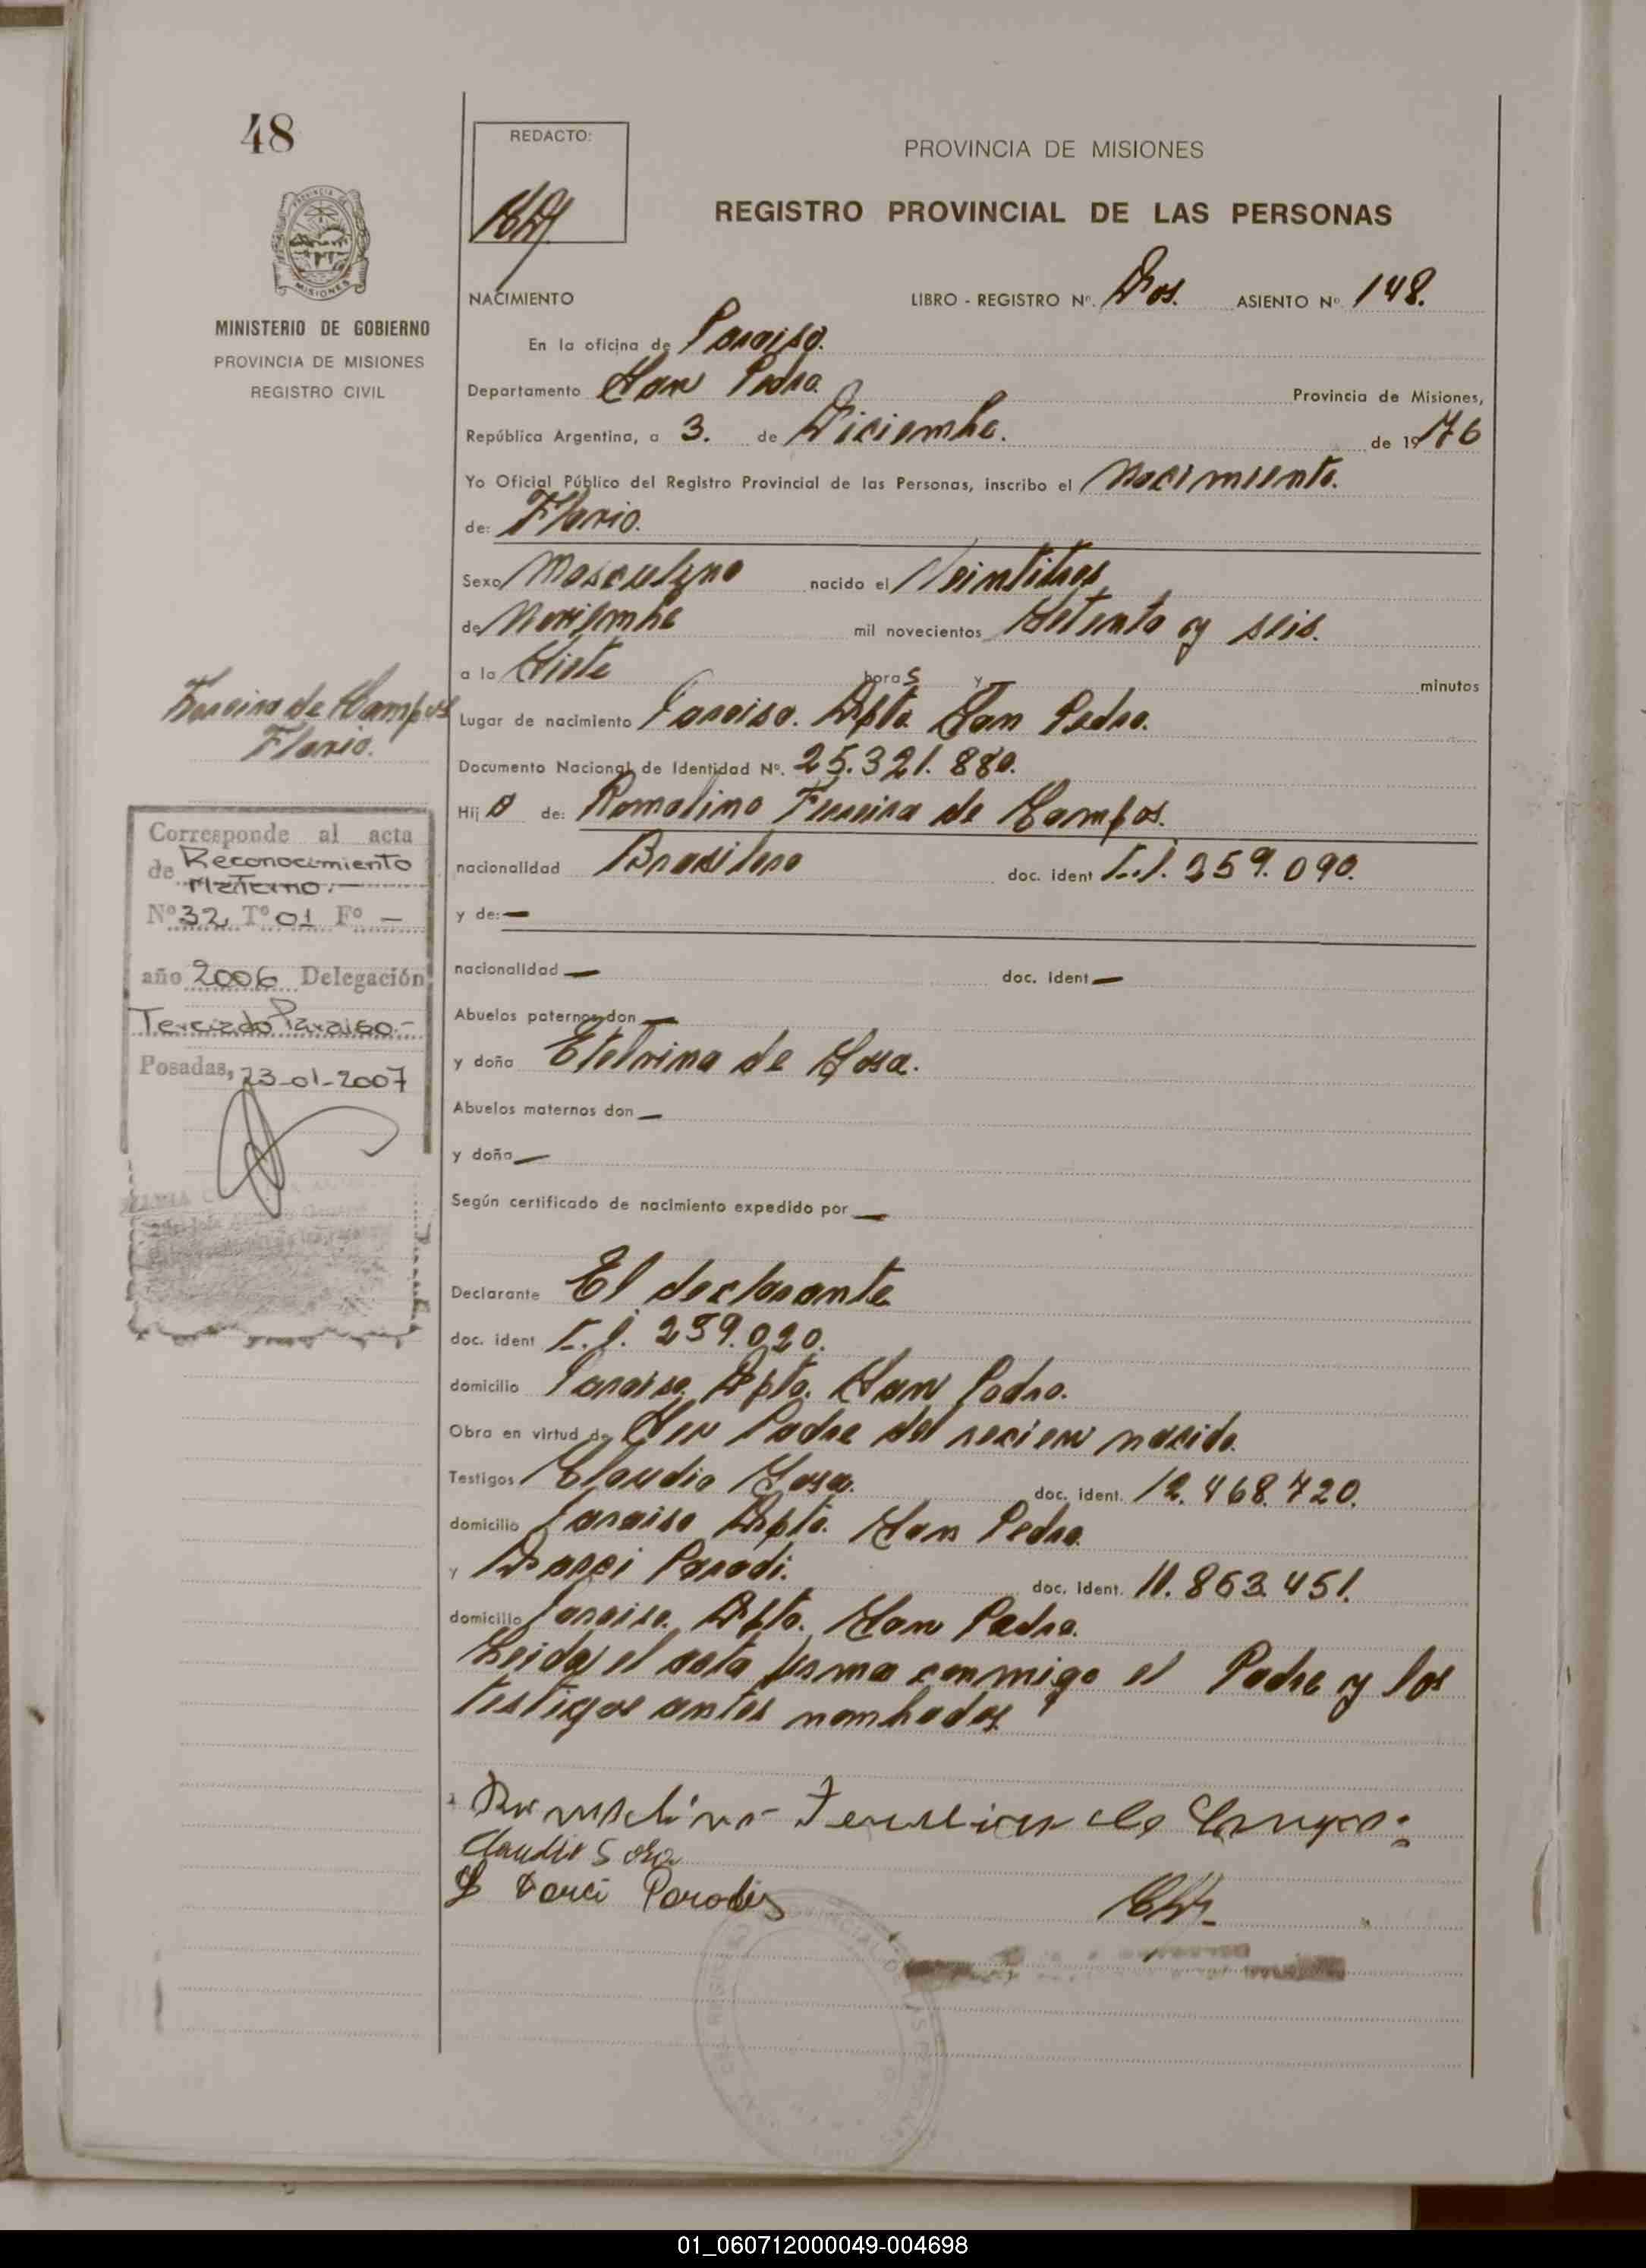 48
REDACTO:
PROVINCIA DE MISIONES
REGISTRO PROVINCIAL DE LAS PERSONAS
MISIONES
MINISTERIO DE GOBIERNO
PROVINCIA DE MISIONES
REGISTRO CIVIL
NACIMIENTO
LIBRO - REGISTRO Nº. Dos. ASIENTO Nº. 148.
En la oficina de Paraiso.
Departamento San Pedro. Provincia de Misiones,
República Argentina, a 3. de Diciembre. de 1976
Yo Oficial Público del Registro Provincial de las Personas, inscribo el Nacimiento.
de: Flavio.
Sexo Masculino nacido el Veintitres
de Noviembre mil novecientos Setenta y seis.
a la Siete horas y minutos
Ferreira de Campos
Flavio.
Lugar de nacimiento Paraiso. Dpto. San Pedro.
Documento Nacional de Identidad Nº. 25.321.880.
Hij o de: Romalino Ferreira de Campos.
nacionalidad Brasilero doc. ident C.I. 259.090.
y de: —
nacionalidad — doc. ident —
Abuelos paternos don —
y doña Etelvina de Sosa.
Abuelos maternos don —
y doña —
Según certificado de nacimiento expedido por —
Corresponde al acta
de Reconocimiento
Materno.-
Nº 32 Tº 01 Fº —
año 2006 Delegación
Terciado Paraiso.-
Posadas, 23-01-2007
Declarante El declarante
doc. ident C.I. 259.090.
domicilio Paraiso. Dpto. San Pedro.
Obra en virtud de Ser Padre del recien nacido.
Testigos Claudio Sosa. doc. ident. 12.468.720.
domicilio Paraiso Dpto. San Pedro.
y Darci Parodi. doc. ident. 11.863.451.
domicilio Paraiso. Dpto. San Pedro.
Leida el acta firma conmigo el Padre y los
testigos antes nombados
Romalino Ferreira de Campos
Claudio Sosa
Darci Parodis
01_060712000049-004698